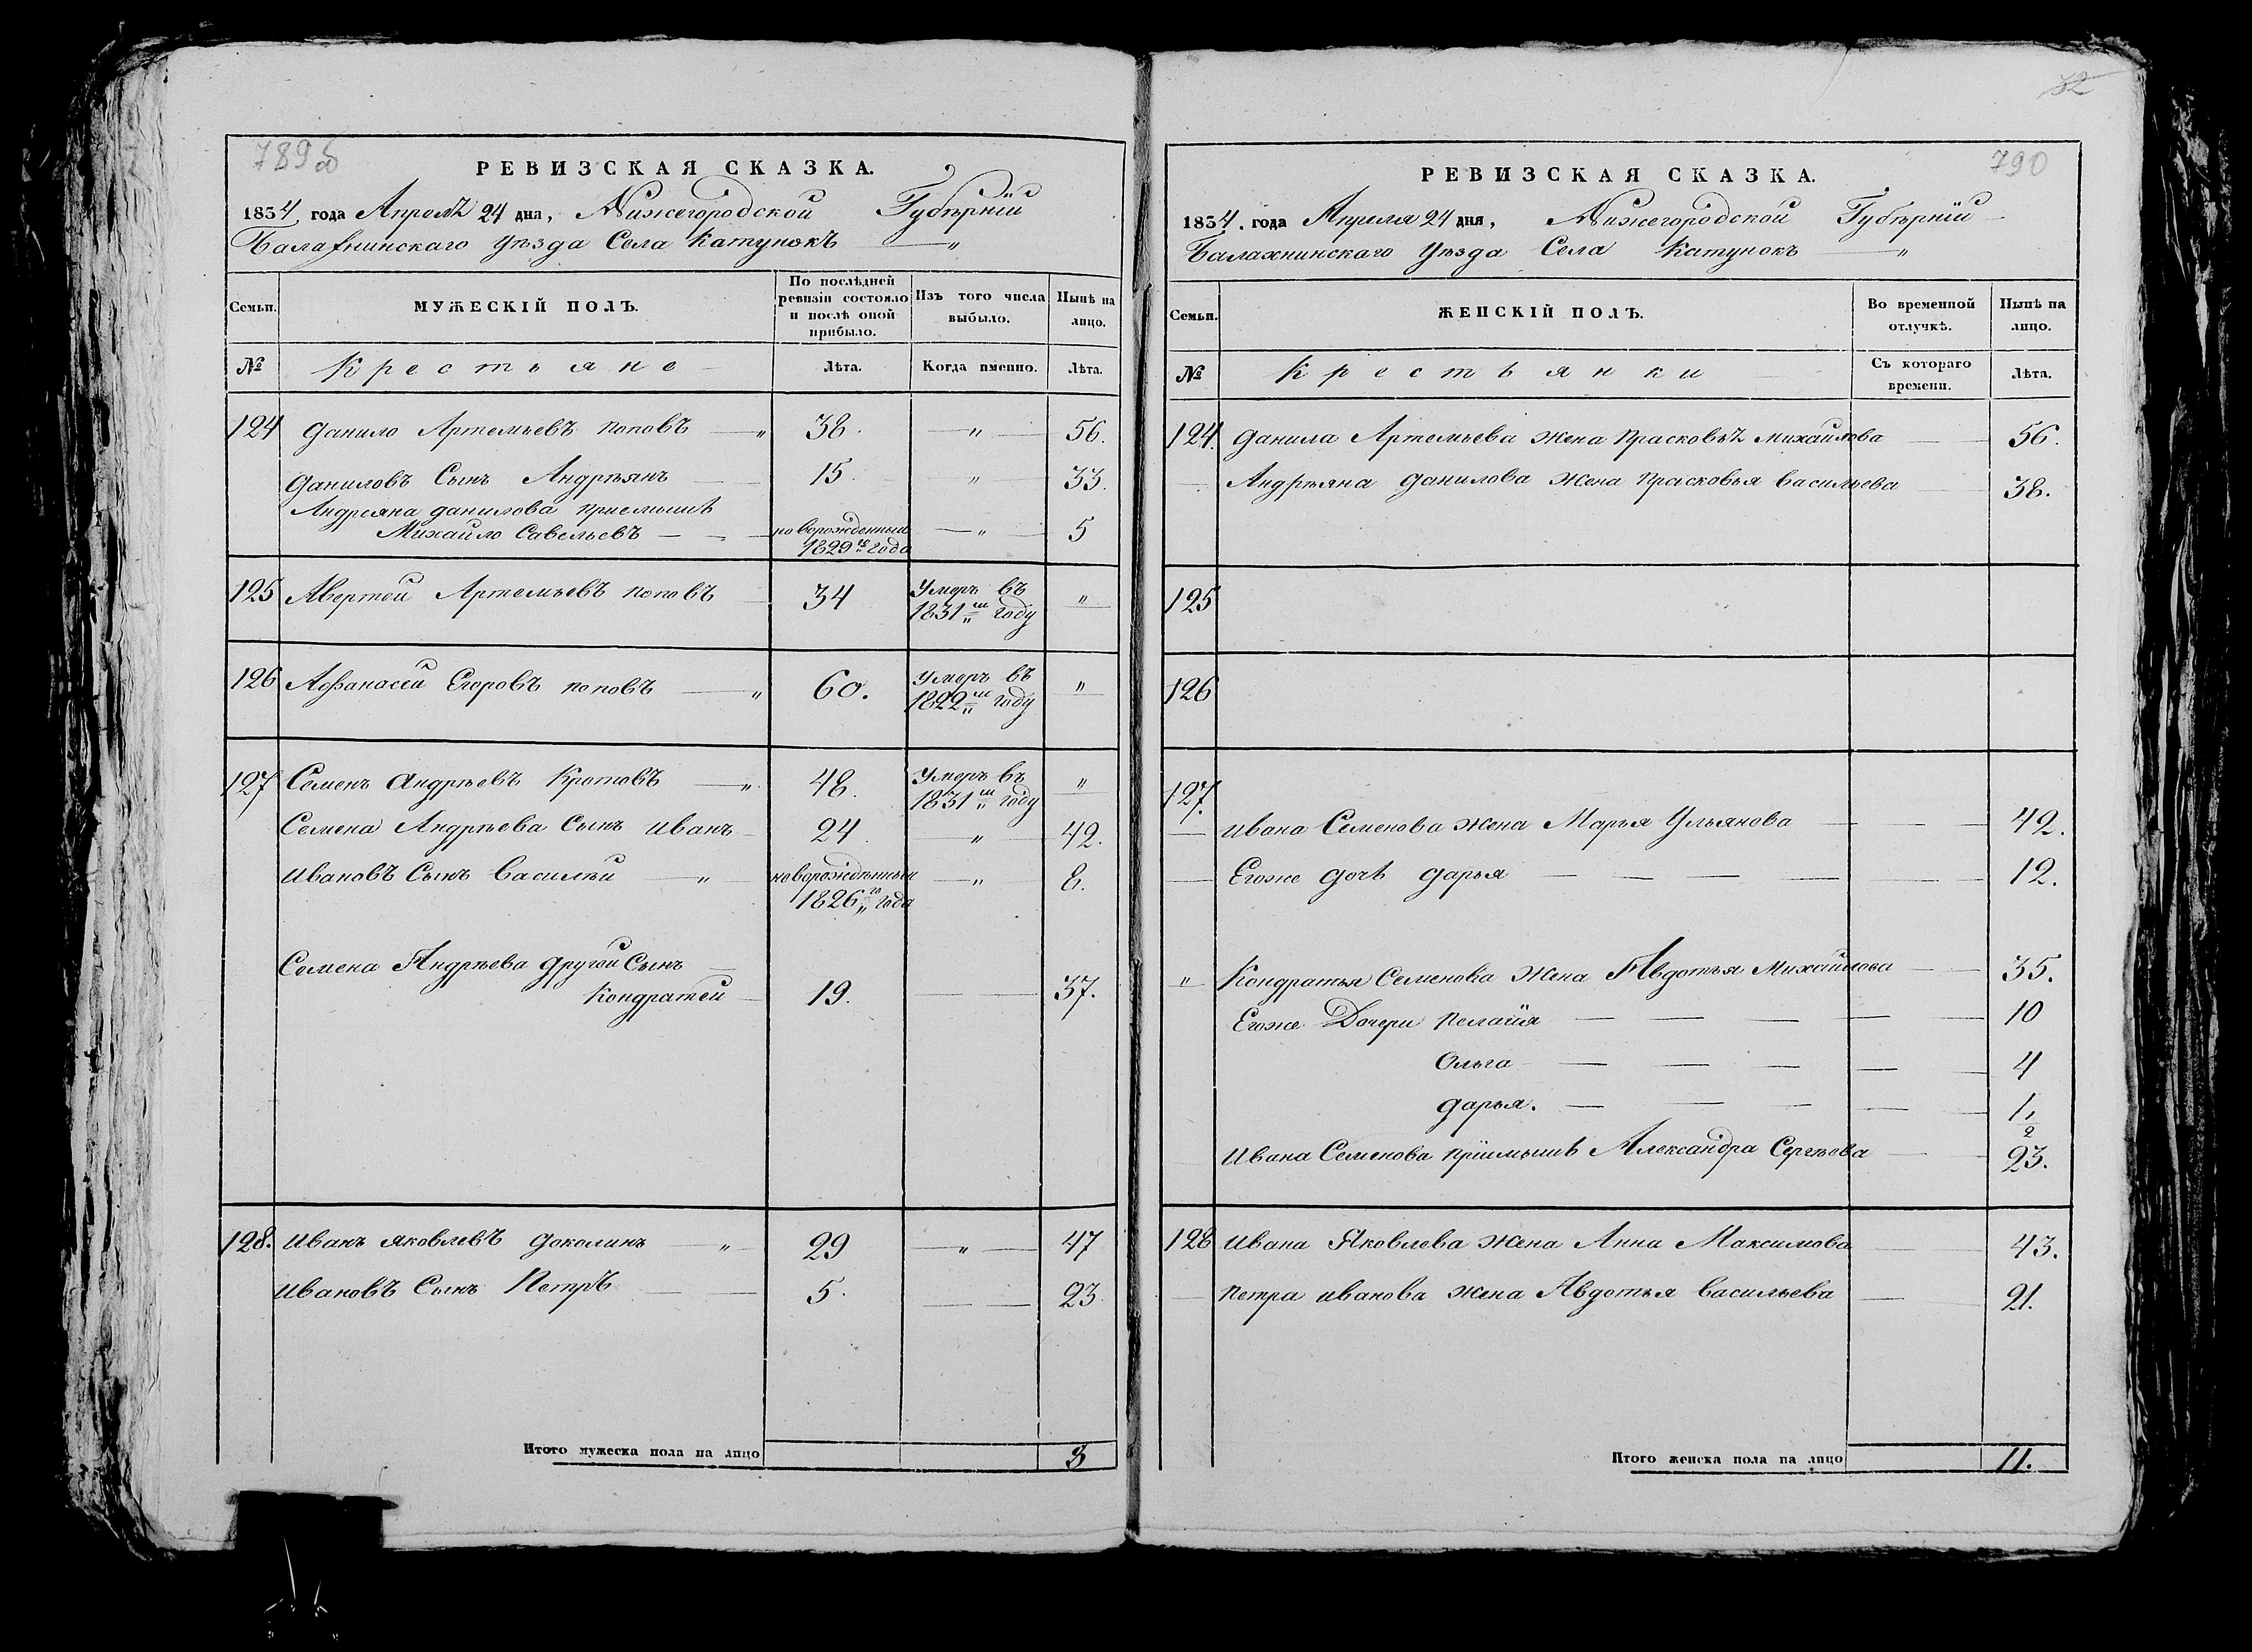 789об
РЕВИЗСКАЯ СКАЗКА.
1834 года Апреля 24 дня, Нижегородской Губѣрнїи
Балахнинскаго уѣзда Села Катунокъ
Семьи. МУЖЕСКІЙ ПОЛЪ. По послѣдней ревизіи состояло и послѣ оной прибыло. Изъ того числа выбыло. Нынѣ на лицо.
№ Крестьяне Лѣта. Когда именно. Лѣта.
124 Данило Артемьевъ Поповъ — " 38. — " — 56.
Даниловъ Сынъ Андреянъ 15 " 33.
Андреяна Данилова приемышъ
Михайло Савельевъ — — новорожденный 1829го года — " — 5
125 Авертей Артемьевъ Поповъ 34 Умеръ въ 1831м году "
126 Афанасей Егоровъ Поповъ — " 60. Умеръ въ 1822м году "
127 Семенъ Андрѣевъ Кротовъ — " 48. Умеръ въ 1831м году "
Семена Андрѣева Сынъ Иванъ 24 — " — 42.
Ивановъ Сынъ Василѣй — " новорождѣнный 1826го года — " — 8.
Семена Андрѣева другой Сынъ
Кондратей 19. — 37.
128. Иванъ Яковлевъ Доколинъ " 29 — " — 47
Ивановъ Сынъ Петръ — — 5. — — 23
Итого мужеска пола на лицо 8
32
790
РЕВИЗСКАЯ СКАЗКА.
1834. года Апреля 24 дня, Нижегородской Губѣрнїи
Балахнинскаго Уѣзда Села Катунокъ — "
Семьи. ЖЕНСКІЙ ПОЛЪ. Во временной отлучкѣ. Нынѣ на лицо.
№ Крестьянки Съ котораго времени. Лѣта.
124. Данила Артемьева жена Прасковья Михайлова — 56.
Андрѣяна Данилова жена Прасковья Васильева — 38.
125
126
127.
Ивана Семенова жена Марья Ульянова — — 42.
Егоже дочь Дарья — — — — 12.
" Кондратья Семенова жена Авдотья Михайлова — 35.
Егоже Дочери Пелагїя — — — — — 10
Ольга — — — — — 4
Дарья. — — — — — 1/2
Ивана Семенова прїимышъ Александра Сергѣева — 23.
128 Ивана Яковлева жена Анна Максимова — 43.
Петра Иванова жена Авдотья Васильева — 21.
Итого женска пола на лицо 11.